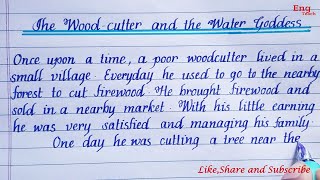 Eng
Teach
The Wood cutter and the Water Goddess
Once upon a time, a poor woodcutter lived in a
small village. Everyday he used to go to the nearby
forest to cut firewood. He brought firewood and
sold in a nearby market. With his little earning
he was very satisfied and managing his family.
One day he was cutting a tree near the
Like,Share and Subscribe